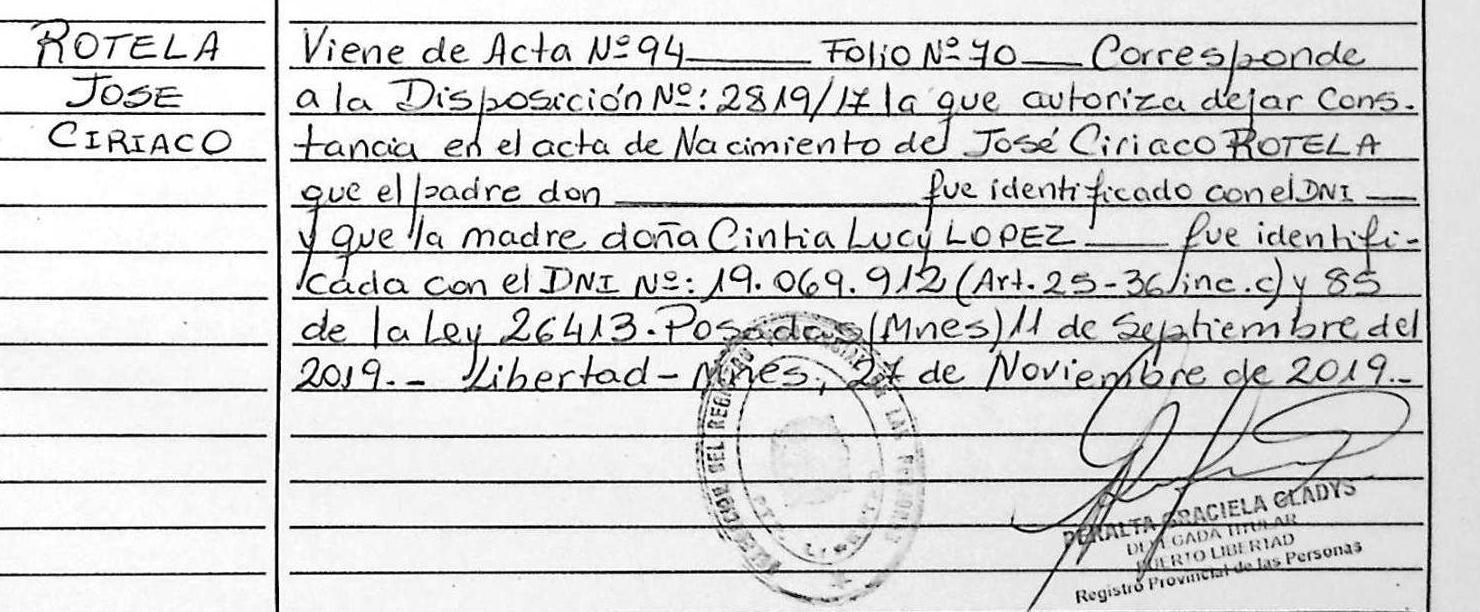 ROTELA
JOSE
CIRIACO
Viene de Acta Nº 94 ______ Folio Nº 70 ___ Corresponde
a la Disposición Nº: 2819/17 la que autoriza dejar Cons-
tancia en el acta de Nacimiento del José Ciriaco ROTELA
que el padre don ____________ fue identificado con el DNI ___
y que la madre doña Cintia Lucy LOPEZ ____ fue identifi-
cada con el DNI Nº: 19.069.912 (Art. 25-36 inc. c) y 85
de la Ley 26413. Posadas (Mnes) 11 de Septiembre del
2019.- Libertad - Mnes, 27 de Noviembre de 2019.-
PERALTA GRACIELA GLADYS
DELEGADA TITULAR
PUERTO LIBERTAD
Registro Provincial de las Personas